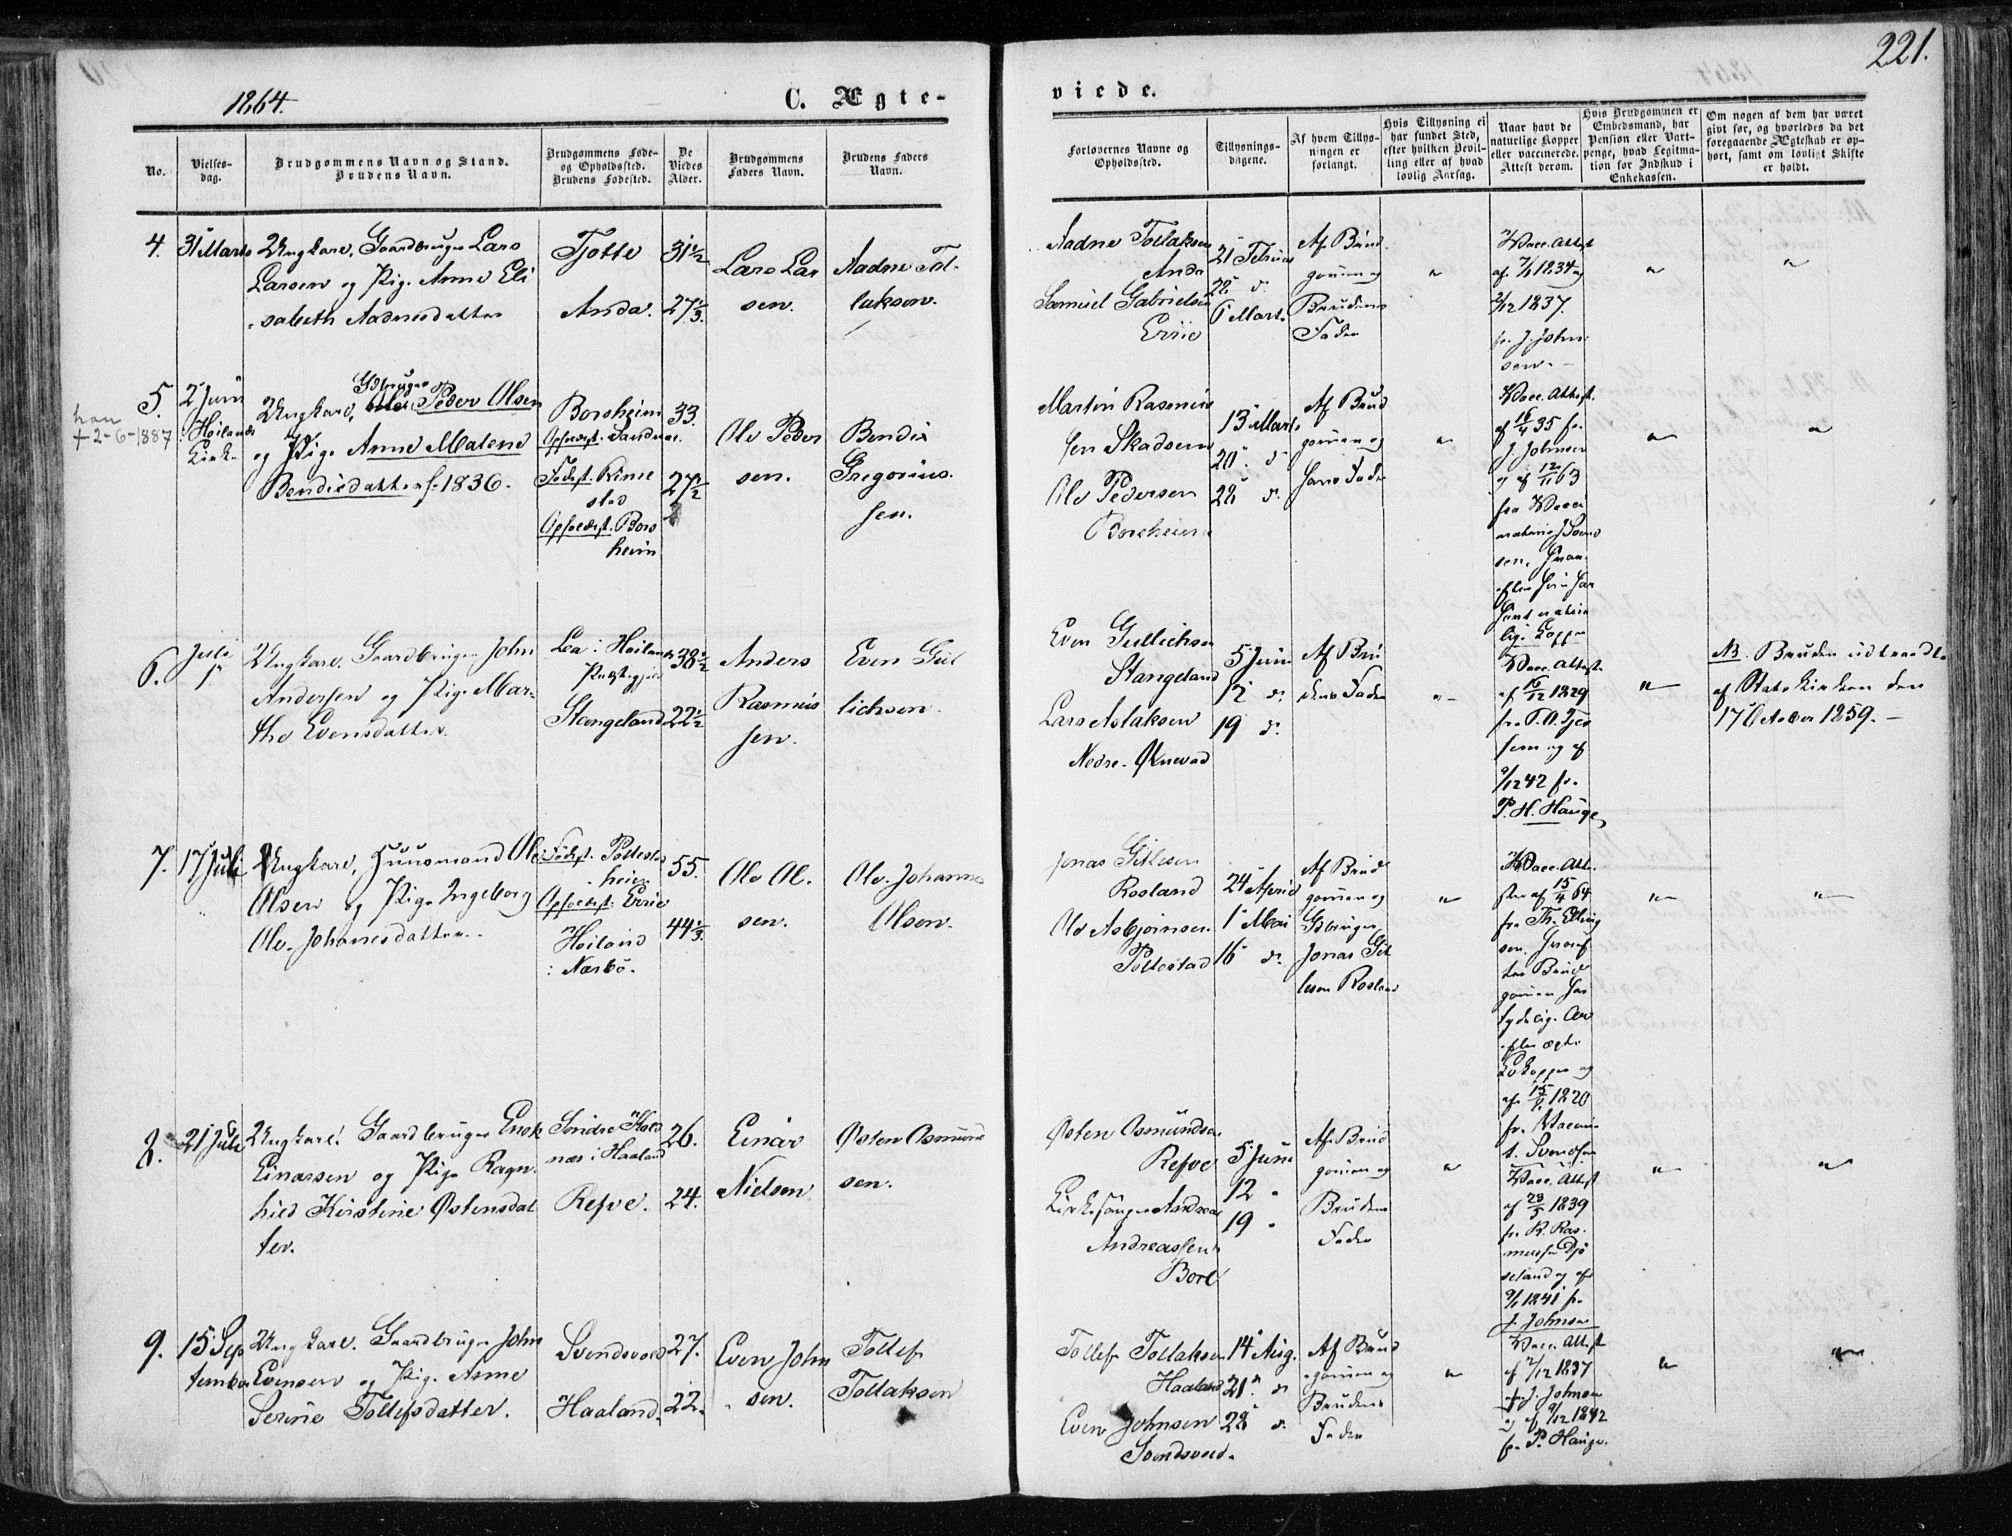 221.
1864.
C. Ægte-
viede.
No.
Vielses-
dag.
Brudgommens Navn og Stand.
Brudens Navn.
Brudgommens Føde-
og Opholdssted.
Brudens Fødested.
De
Viedes
Alder.
Brudgommens
Faders Navn.
Brudens Faders
Navn.
Forlovernes Navne og
Opholdssted.
Tillysnings-
dagene.
Af hvem Tillys-
ningen er
forlangt.
Hvis Tillysning ei
har fundet Sted,
efter hvilken Bevil-
ling eller af hvad
lovlig Aarsag.
Naar havt de
naturlige Kopper
eller vaccinerede.
Attest derom.
Hvis Brudgommen er
Embedsmand, har
Pension eller Vart-
penge, hvad Legitima-
tion for Indskud i
Enkekassen.
Om nogen af dem har været
givt før, og hvorledes da det
foregaaende Ægteskab er op-
hørt, samt om lovligt Skifte
er holdt.
4.
31 Marts
Ungkarl, Gaardbruger Lars
Larsen og Pige Anne Eli
sabeth Aadnesdatter
Tjotte
Anda.
31½
27⅓.
Lars Lar
sen.
Aadne Tol-
laksen.
Aadne Tollaksen
Anda
Samuel Gabrielsen
Errie
21 Februar
28 d.
6 Mart.
Af Brud
gommen og
Brudens
Fader
Vacc. Attest
af 7/1 1834 og
2/12 1837.
fr. J. John
sen.
5.
2 Juni
i Høilands
Kirke
han
+ 2-6-1887
Gdbruger
Ungkarl, Peder Olsen
og Pige Anne Malene
Bendixdatter f. 1836.
Borsheim
Opholdst. Sandnæs.
Fødst. Kime
stad
Opholdst. Bors
heim
33.
27½
Ole Peder
sen.
Bendix
Gregorius
sen.
Martin Rasmus
sen Skadsem
Ole Pedersen
Borsheim
13 Marts
20 d
28 d.
Af Brud
gommen og
hans Fader
Vacc. Attest.
af 15/4 35 fr.
J. Johnsen
og af 12/11 63
fra Vacci
natrice
sen, hvor
efter hun har
havt natur
lige Kopper
6.
Julii
1
Ungkarl. Gaardbruger John
Andersen og Pige Mar-
the Evensdatter.
Lea i Høilands
Præstegjeld
Stangeland
38½
22½
Anders
Rasmus
sen.
Even Gul
lichsen.
Even Gullichsen
Stangeland
Lars Aslaksen
Nedre Øknevad
5 Juni
12 d.
19 d.
Af Bru
dens Fader
Vacc. Attest.
af 16/12 1829
fr. T. A. Tjes
sem og af
9/12 42 fr.
P. H. Hauge
NB. Bruden udtraadte
af Statskirken den
17 October 1859.
7.
17 Juli
Ungkarl, Huusmand Ole
Olsen og Pige Ingeborg
Ole Johannesdatter.
Fødst. Pollestad
heien
Opholdst. Errie
Høiland
i Nærbø.
55.
44⅓.
Ole Ol.
sen.
Ole Johannes
Olsen.
Jonas Gitlesen
Rosland
Ole Asbjørnsen
Pollestad
24 April
1 Mai
16 d.
Af Brud
gommen og
Gdbruger
Jonas Git
lesen Rosland
Vacc. Atte
ster af 15/4 64
fr. Th. Elling
sen, hvoref
ter Brud
gommen har
tydelige Ar
efter ægte
Kokopper og
af 15/9 1820
fr. Vaccin
t. Svendsen
8.
21 Juli
Ungkarl. Gaardbruger Enok
Einarsen og Pige Ragn
hild Kirstine Østensdat
ter.
Søndre Kal
næs i Haaland
Refve.
26.
24.
Einar
Nielsen
Østen Osmund
sen.
Østen Osmundsen
Refve
Kirkesanger Andreas
Andreassen
Bore
5 Juni
12 "
19 "
Af Brud
gommen og
Brudens
Fader
Vacc. Attest
af 23/5 1839
fr. R. Ras
mussen Djø
seland og af
9/1 1841 fr.
J. Johnsen
9.
15 Sep
tember
Ungkarl. Gaardbruger John
Evensen og Pige Anne
Serine Tollefsdatter.
Svendsvold
Haaland.
27.
22.
Even John
sen.
Tollef
Tollaksen
Tollef Tollaksen
Haaland
Even Johnsen
Svendsvold.
14 Aug.
21 d.
28 d.
Af Brud
gommen og
Brudens
Fader
Vacc. Attest
af 2/12 1837
fr. J. Johnsen
og af 9/12 1842
fr. P. Hauge.